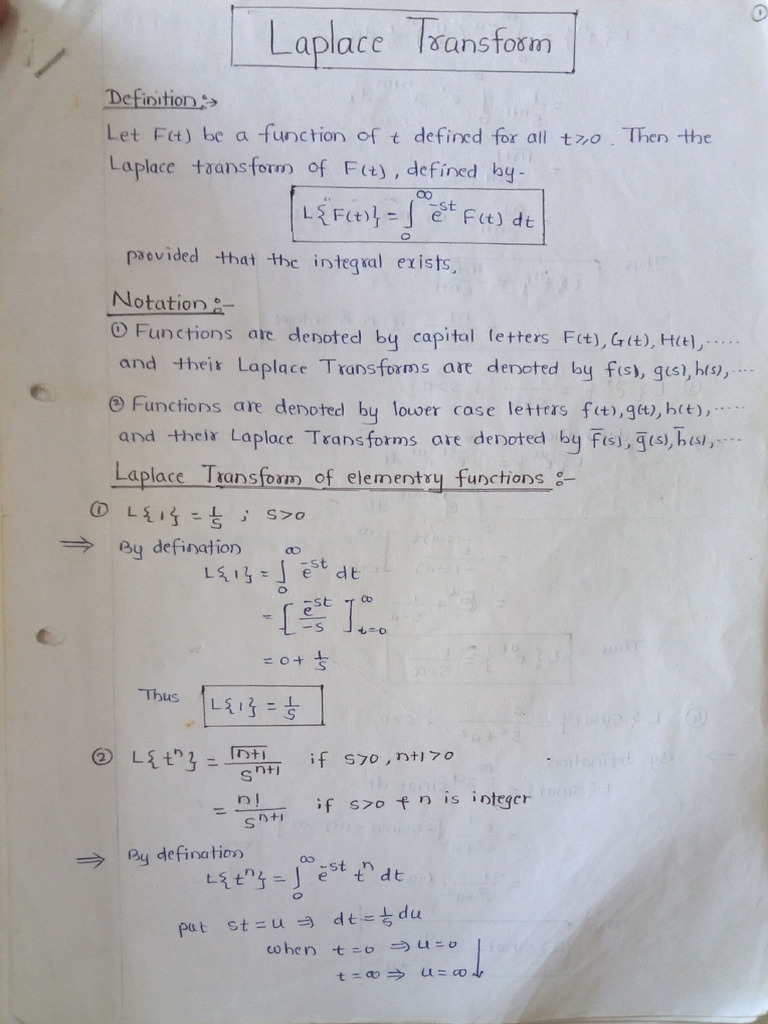 ①
Laplace Transform
Definition :→
Let F(t) be a function of t defined for all t≥0. Then the
Laplace transform of F(t), defined by-
L{F(t)} = ∫₀^∞ e^{-st} F(t) dt
provided that the integral exists.
Notation :-
① Functions are denoted by capital letters F(t), G(t), H(t), .....
and their Laplace Transforms are denoted by f(s), g(s), h(s), ....
② Functions are denoted by lower case letters f(t), g(t), h(t), .....
and their Laplace Transforms are denoted by f̄(s), ḡ(s), h̄(s), ....
Laplace Transform of elementry functions :-
① L{1} = 1/s ; s>0
⇒ By defination
L{1} = ∫₀^∞ e^{-st} dt
= [e^{-st}/-s]_{t=0}^∞
= 0 + 1/s
Thus L{1} = 1/s
② L{t^n} = Γ(n+1)/s^{n+1} if s>0, n+1>0
= n!/s^{n+1} if s>0 & n is integer
⇒ By defination
L{t^n} = ∫₀^∞ e^{-st} t^n dt
put st=u ⇒ dt = 1/s du
when t=0 ⇒ u=0
t=∞ ⇒ u=∞ ↓